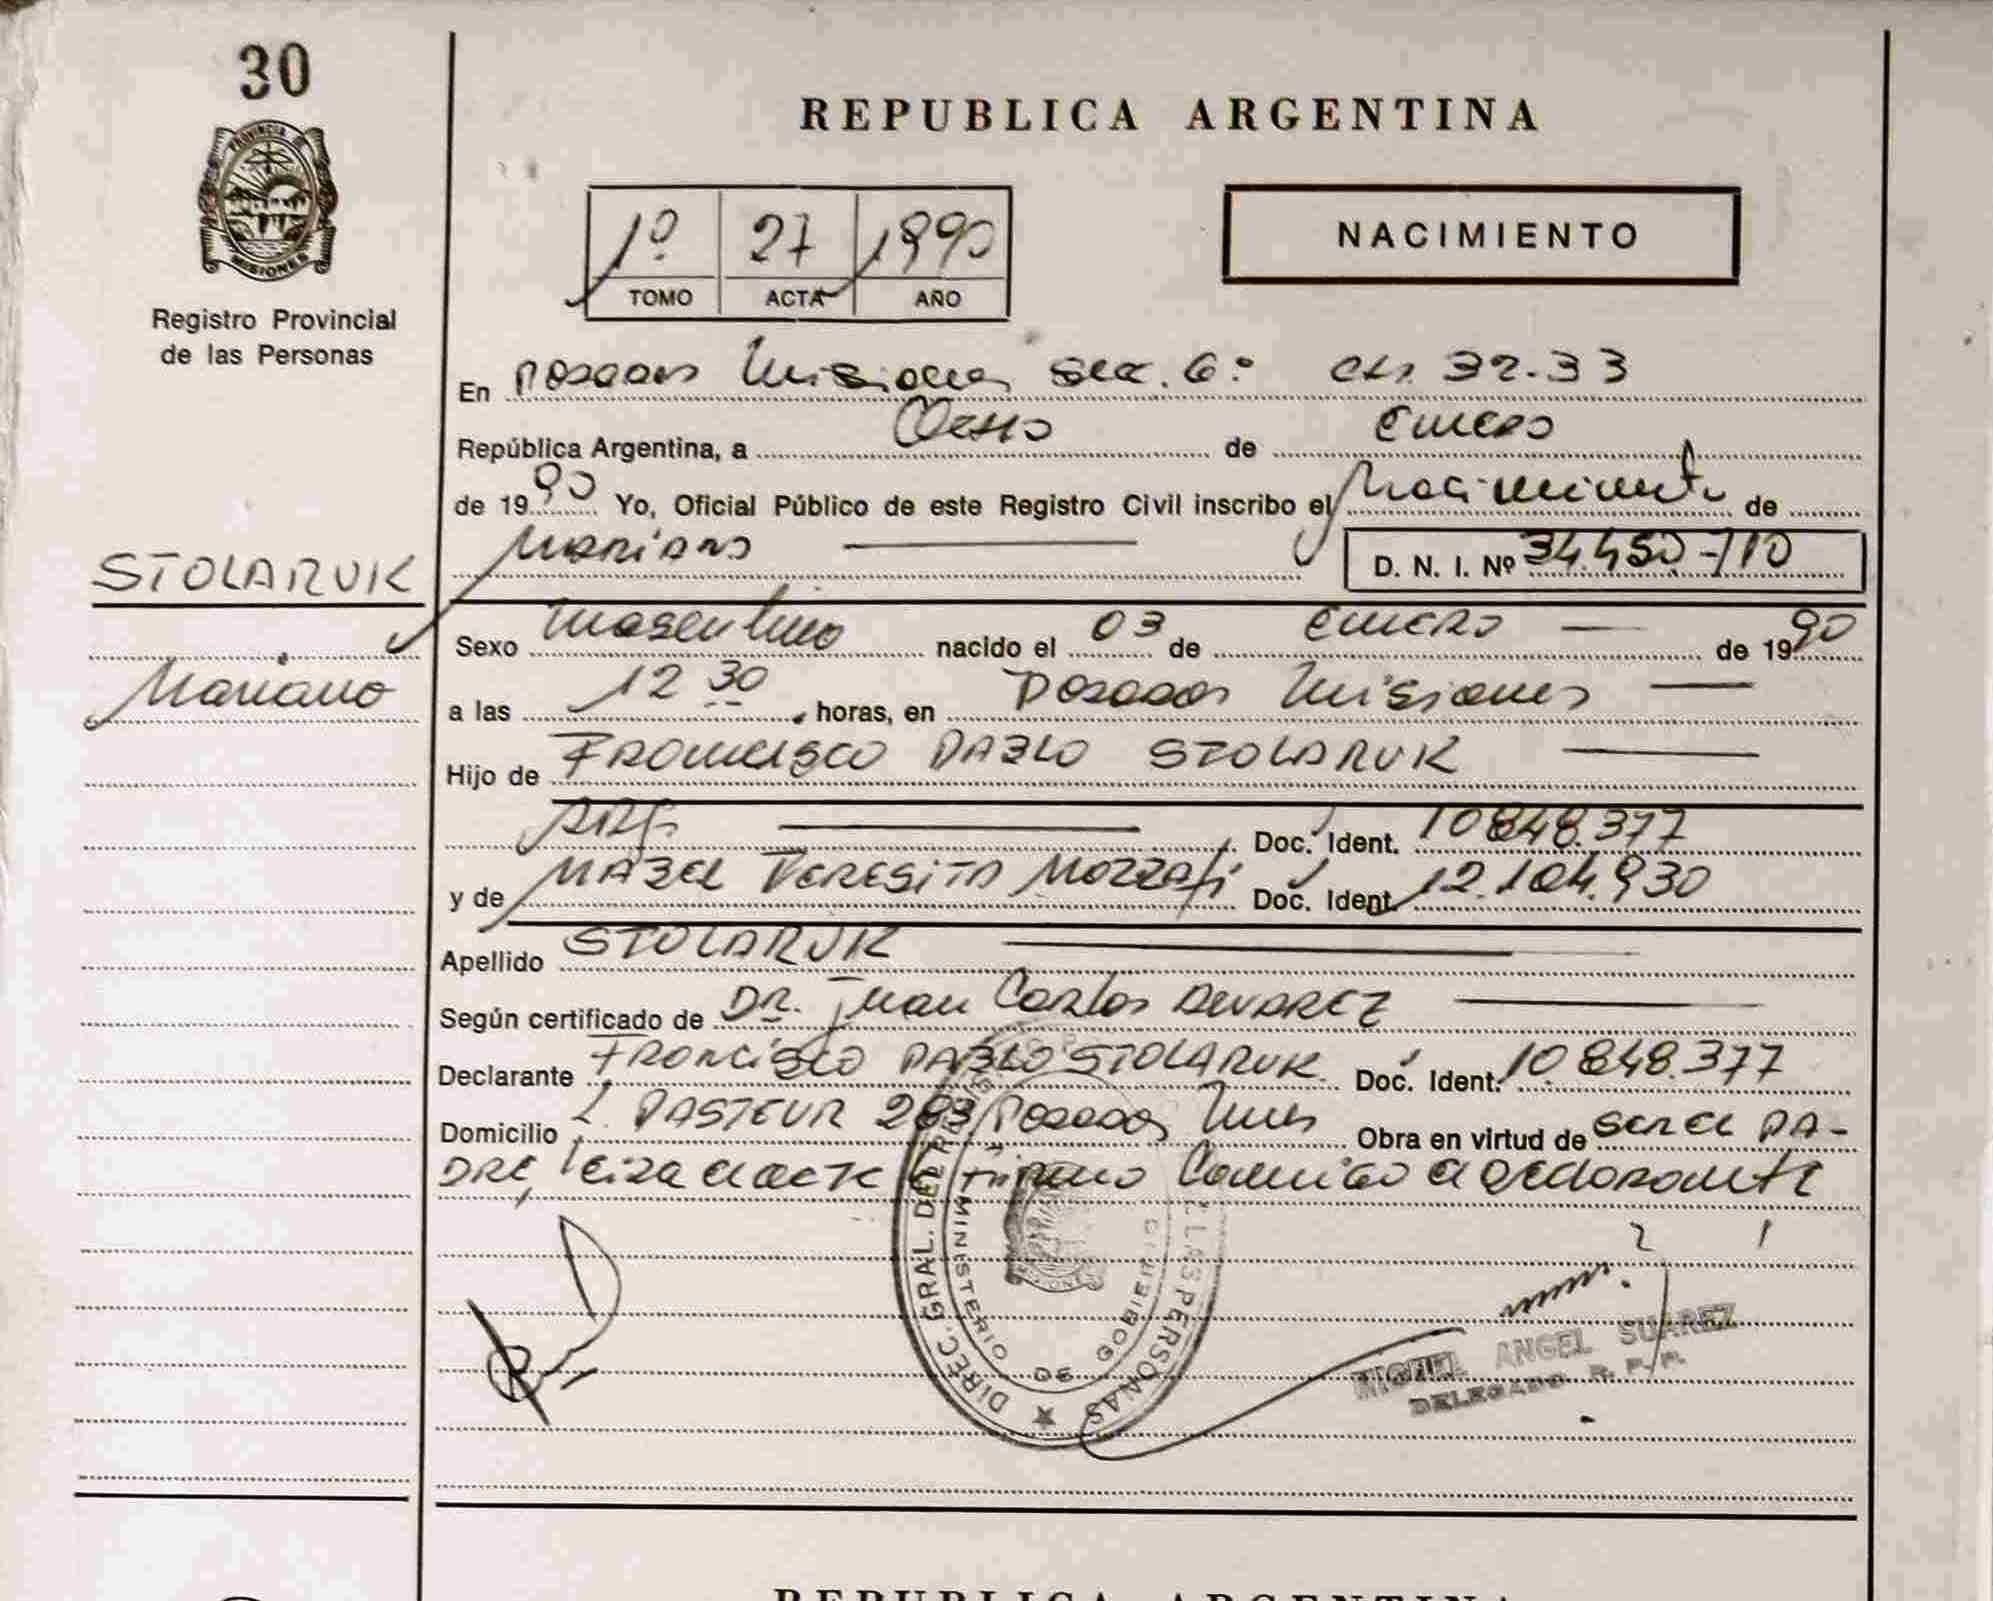 30
REPUBLICA ARGENTINA
PROVINCIA DE
MISIONES
Registro Provincial
de las Personas
1º 27 1990
TOMO ACTA AÑO
NACIMIENTO
En Posadas Misiones Sec. 6º 32-33
República Argentina, a Ocho de Enero
de 1990 Yo, Oficial Público de este Registro Civil inscribo el Nacimiento de
Mariano D. N. I. Nº 34.450-710
STOLARUK
Mariano
Sexo Masculino nacido el 03 de Enero de 1990
a las 12 30 horas, en Posadas Misiones
Hijo de Francisco Pablo STOLARUK
ARG. Doc. Ident. 10848.377
y de MABEL Teresita Doc. Ident. 12.104.930
Apellido STOLARUK
Según certificado de DR. Juan Carlos ALVAREZ
Declarante Francisco Pablo STOLARUK Doc. Ident. 10848.377
Domicilio L. PASTEUR 283 Posadas Mnes Obra en virtud de ser el PA-
DRE, leida el acta firmo conmigo el declarante
DIREC. GRAL. DEL LAS PERSONAS
MINISTERIO DE GOBIERNO
MIGUEL ANGEL SUAREZ
DELEGADO R. P. P.
REPUBLICA ARGENTINA